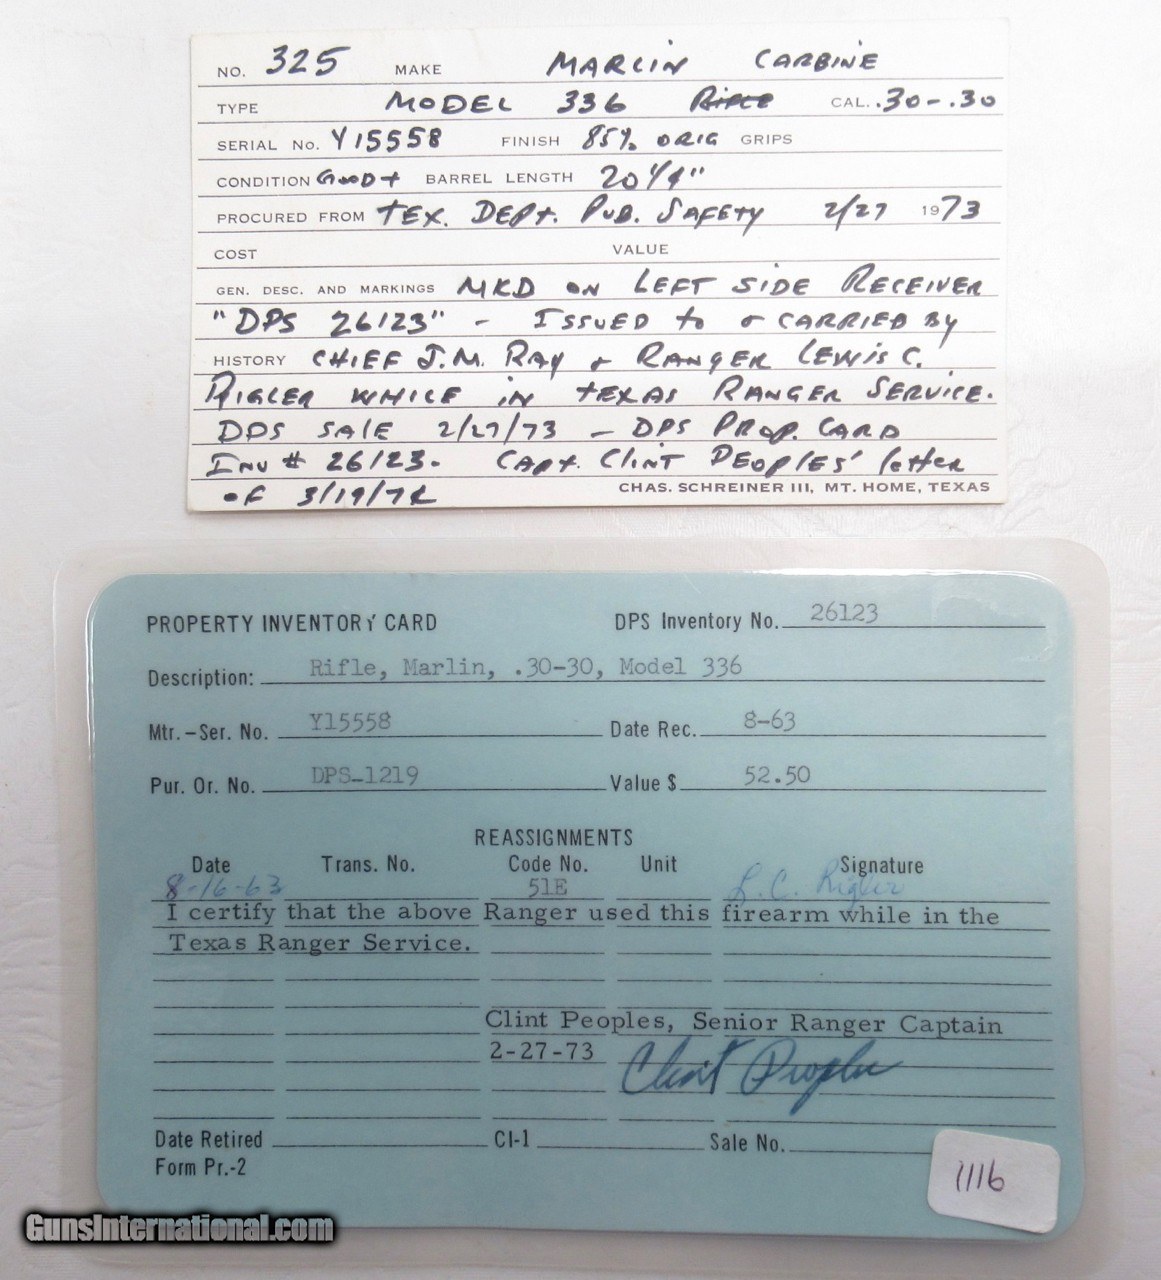 NO. 325 MAKE MARLIN CARBINE
TYPE MODEL 336 Rifle CAL. .30-.30
SERIAL No. Y15558 FINISH 85% ORIG GRIPS
CONDITION GOOD+ BARREL LENGTH 20 1/4"
PROCURED FROM TEX. DEPT. PUB. SAFETY 2/27 1973
COST VALUE
GEN. DESC. AND MARKINGS MKD ON LEFT SIDE RECEIVER
"DPS 26123" - ISSUED to & CARRIED By
HISTORY CHIEF J.M. RAY & RANGER LEWIS C.
RIGLER WHILE in TEXAS RANGER SERVICE.
DPS SALE 2/27/73 - DPS PROP. CARD
INV # 26123. CAPT. CLINT PEOPLES' letter
OF 3/19/72
CHAS. SCHREINER III, MT. HOME, TEXAS
PROPERTY INVENTORY CARD DPS Inventory No. 26123
Description: Rifle, Marlin, .30-30, Model 336
Mtr.-Ser. No. Y15558 Date Rec. 8-63
Pur. Or. No. DPS-1219 Value $ 52.50
REASSIGNMENTS
Date Trans. No. Code No. Unit Signature
8-16-63 51E L.C. Rigler
I certify that the above Ranger used this firearm while in the
Texas Ranger Service.
Clint Peoples, Senior Ranger Captain
2-27-73 Clint Peoples
Date Retired CI-1 Sale No.
Form Pr.-2
1116
GunsInternational.com